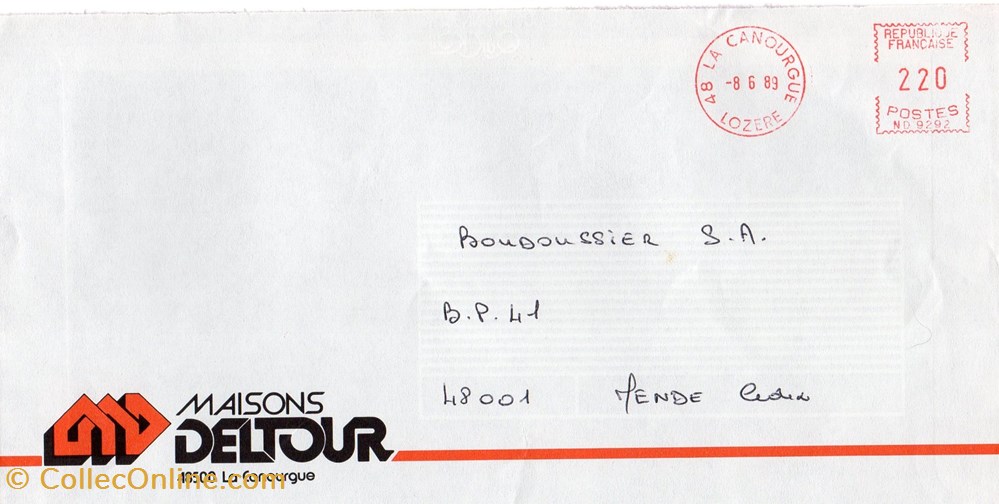 48 LA CANOURGUE
-8 6 89
LOZERE
REPUBLIQUE
FRANCAISE
220
POSTES
ND 9292
BOUDOUSSIER S.A.
B.P. 41
48001 MENDE Cedex
MAISONS
DELTOUR
48500 La Canourgue
© CollecOnline.com